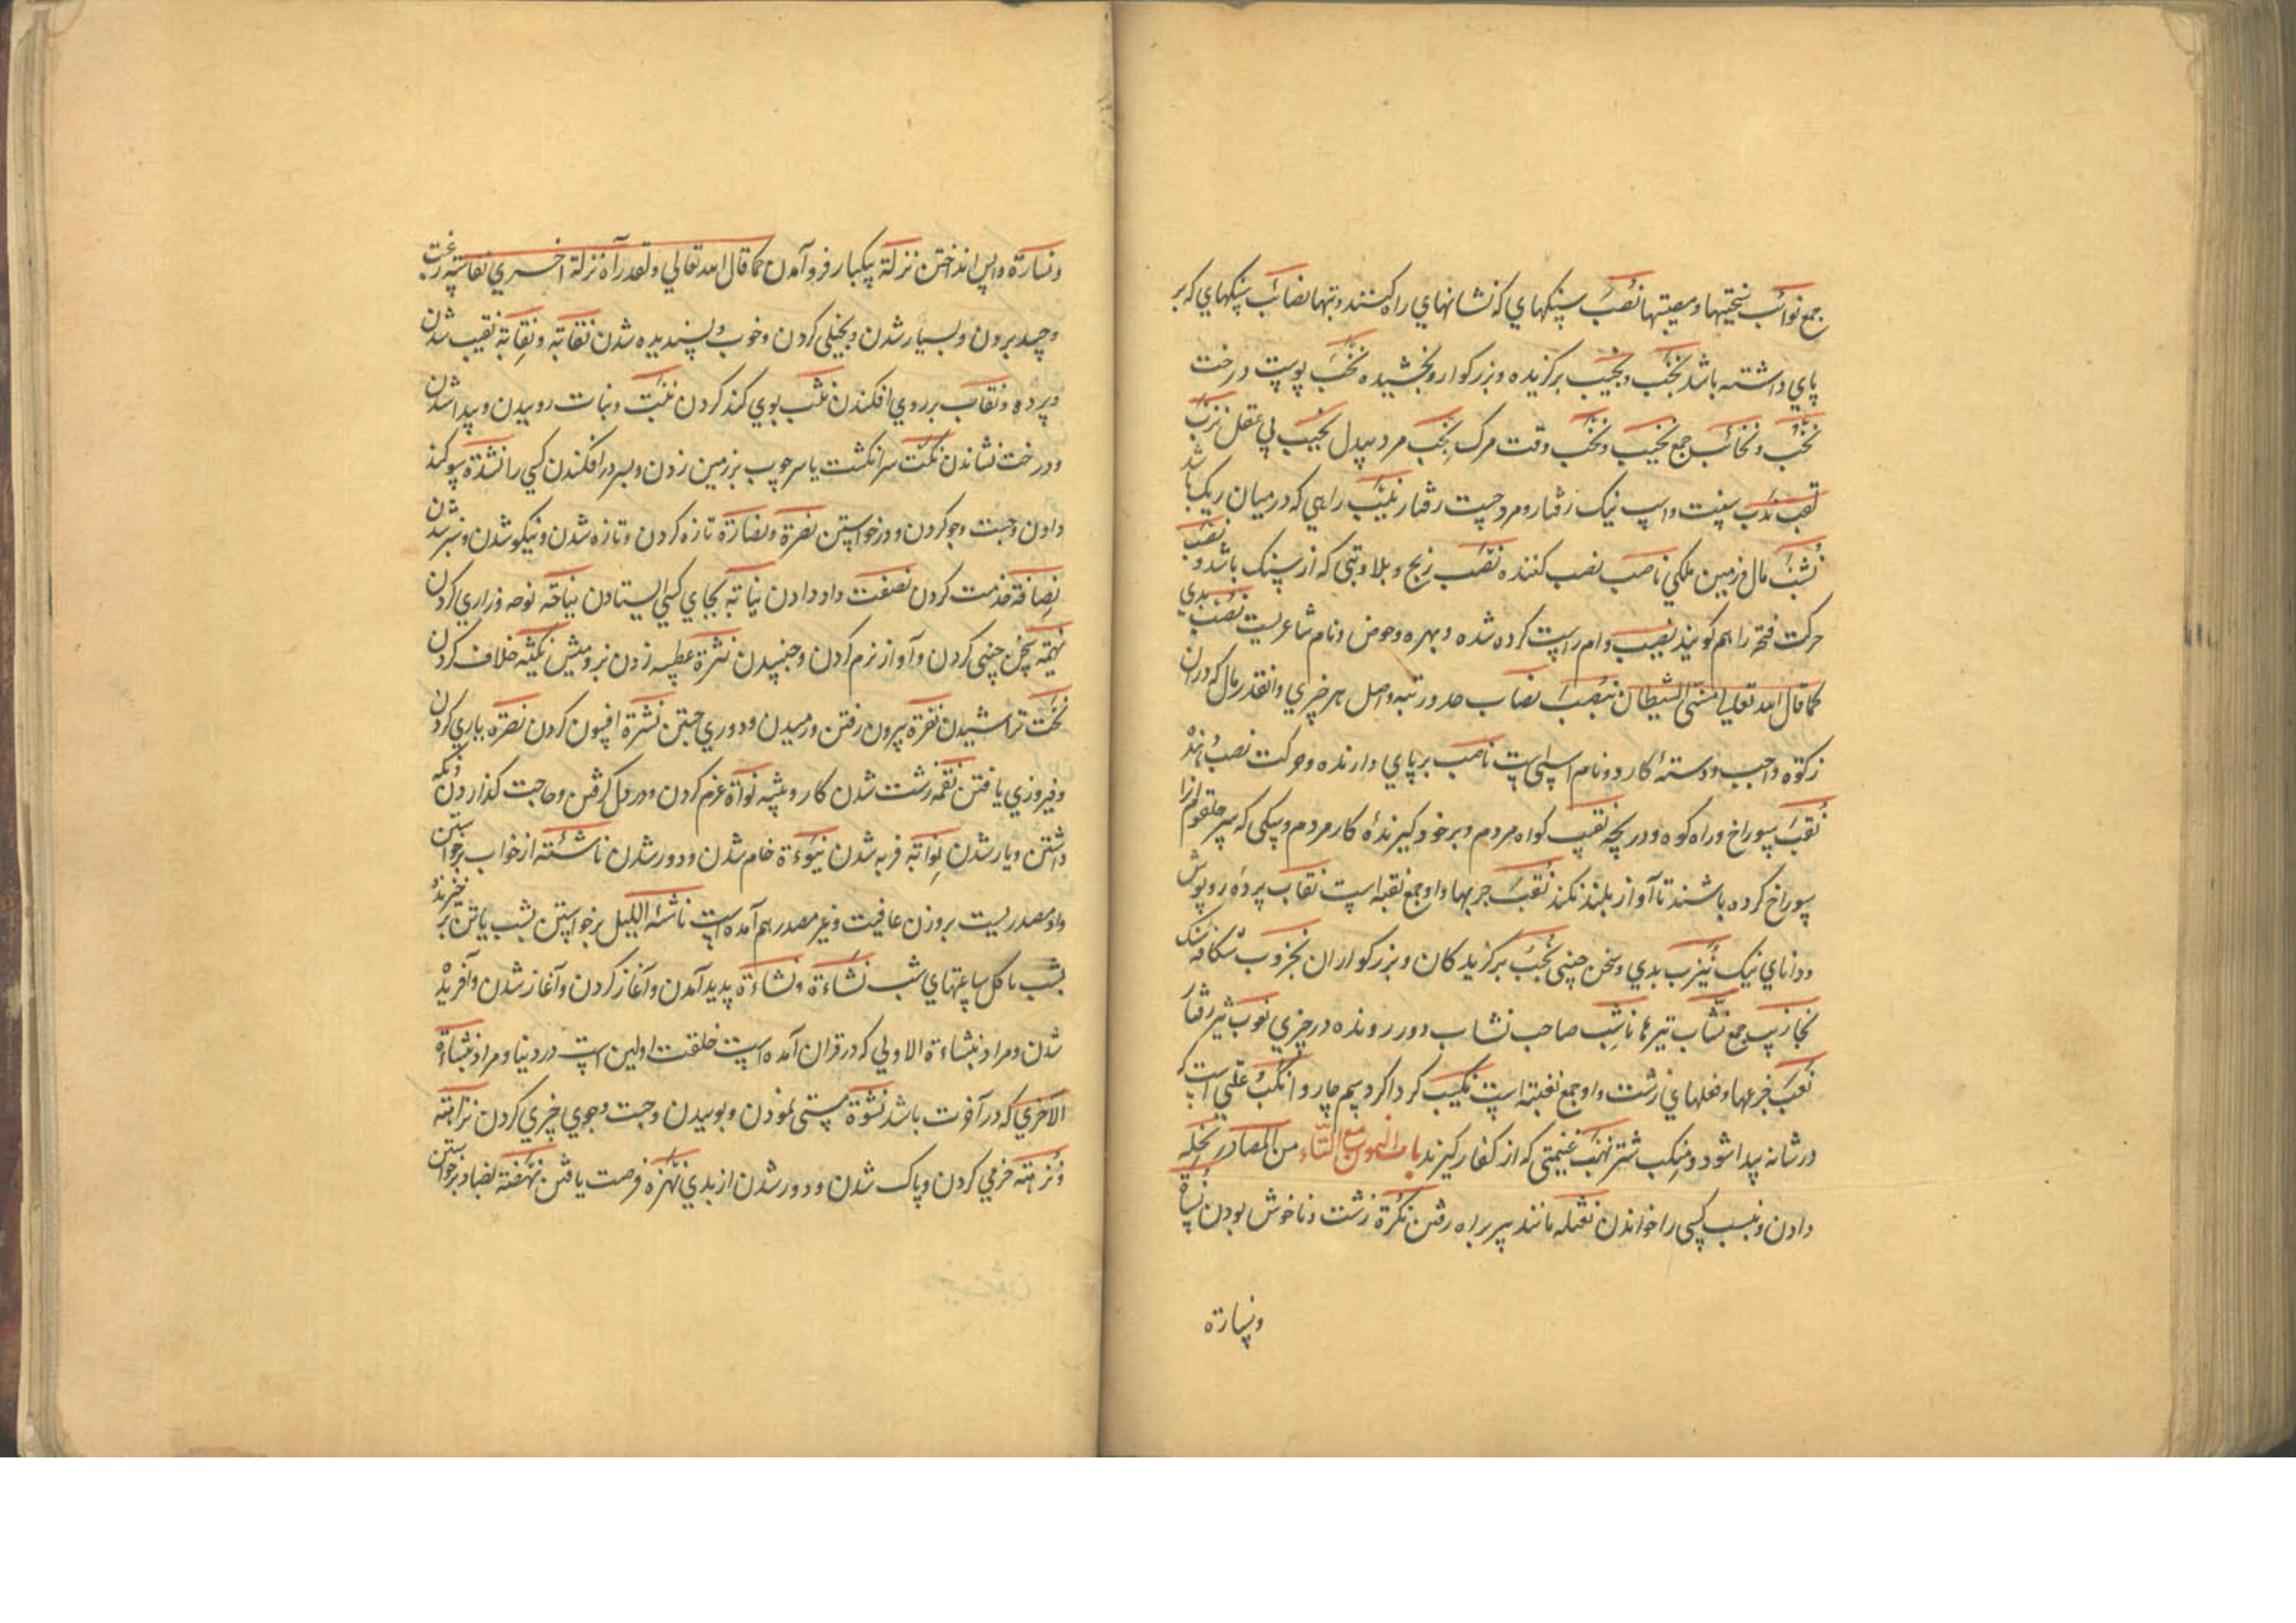 جمع نوائب سختیها و مصیبتها نُصُبَ سنکهای که نشانهای راه کنند و بتها نصائب سنکهای که بر
پای داشته باشد نُخَب و نجیب برکزیده و بزرکوار و بخشیده نَجَب پوست درخت
نُخُب و نخائب جمع نخیب و نخب وقت مرک نخب مرد بیدل نخیب بی عقل نزب
لقب ندب سپنت واسپ نیک رفتار و مرد چست رفتار نیسب راهی که در میان ریک باشد
نُشَب مال و زمین ملکی ناصب نصب کننده نصب رنج و بلا و بتی که از سنک باشد و نصب
حرکت فتحه را هم کویند نصیب دام راست کرده شده و بهره و حوض و نام شاعریست نُصُب بدی
کما قال الله تعالی مسنی الشیطان بنصب نصاب حد و رتبه و اصل هر چیزی و آنقدر مال که در آن
زکوه واجب و دستهٔ کارد و نام اسپی است ناصب برپای دارنده و حرکت نصب دهنده
نُقَب سوراخ و راه کوه و دریچه نقیب کواه مردم و برخود کیرندهٔ کار مردم و سکی که سر حلقوم او را
سوراخ کرده باشند تا آواز بلند نکند نُقَبَ جربها و او جمع نقبه است نقاب پردهٔ روپوش
و دانای نیک نیرب بدی و سخن چینی نُجُب برکزیدکان و بزرکواران نخروب شکاف سنک
نخاریب جمع نُشّاب تیرها ناشب صاحب نشاب و در رونده در چیزی نعوب تیز رفتار
نُغَب جرعها و فعلهای زشت و او جمع نغبه است نکیب کرداکرد سم چاروا نکب علتی است که
در شانه پیدا شود و منکب شتر نهب غنیمتی که از کفار کیرند باب النون مع التاء من المصادر نحله
دادن و نسب کسی را خواندن نقثله مانند پیر براه رفتن نُکرة زشت و ناخوش بودن نساة
ونسارة
ونسارة واپس انداختن نزلة یکبار فرو آمدن کما قال الله تعالی ولقد رآه نزلة اخری نفاسة رغبت
و حسد بردن و بسیار شدن و بخیلی کردن و خوب و پسندیده شدن نَقابة و نِقابة نقیب شدن
و پرده و نقاب بر روی افکندن بوی کند کردن نبت و نبات روییدن و پیدا شدن
و درخت نشاندن نکت سر انکشت یا سر چوب بر زمین زدن و بسر در افکندن کسی را نشدة سوکند
دادن و جست و جو کردن و درخواستن نضرة و نضارة تازه کردن و تازه شدن و نیکو شدن و سبز شدن
نصافة خدمت کردن نصفت داد دادن نیابة بجای کسی ایستادن نیاحة نوحه و زاری کردن
نهمه سخن چینی کردن و آواز نرم کردن و جنبیدن نثرة عطسه زدن بز و میش نکثه خلاف کردن
نحت تراشیدن نفرة بیرون رفتن و رمیدن و دوری جستن نشرة افسون کردن نصرة یاری کردن
و فیروزی یافتن نقمة زشت شدن کار و پیشه نواة عزم کردن و در دل کرفتن و حاجت کذاردن و نکه
داشتن و یار شدن نوایة فربه شدن نیوءة خام شدن و دور شدن ناشئة از خواب برخواستن
و او مصدریست بر وزن عافیت و غیر مصدر هم آمده است ناشئة اللیل برخواستن بشب یا تن برخیزنده
بشب یا کل ساعتهای شب نشاءة و نشاءة پدید آمدن و آغاز کردن و آغاز شدن و آفریده
شدن و مراد بنشاءة الاولی که در قرآن آمده است خلقت اولین است در دنیا و مراد بنشاءة
الاخری که در آخرت باشد نشوة مستی نمودن و بوییدن و جست و جوی خبری کردن نزاهة
و نزهة خرمی کردن و پاک شدن و دور شدن از بدی نهزه فرصت یافتن نهضة بضاد برخواستن